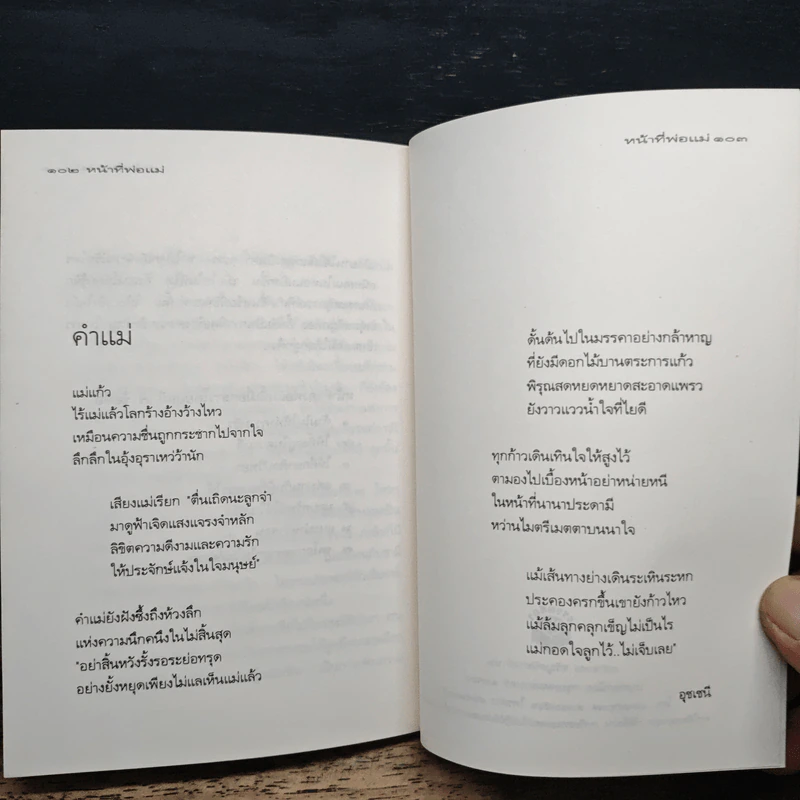 ๑๐๒ หน้าที่พ่อแม่
คำแม่
แม่แก้ว
ไร้แม่แล้วโลกร้างอ้างว้างไหว
เหมือนความชื่นถูกกระชากไปจากใจ
ลึกลึกในอุ้งอุราเหว่ว้านัก
เสียงแม่เรียก "ตื่นเถิดนะลูกจ๋า
มาดูฟ้าเจิดแสงแจรงจำหลัก
ลิขิตความดีงามและความรัก
ให้ประจักษ์แจ้งในใจมนุษย์"
คำแม่ยังฝังซึ้งถึงห้วงลึก
แห่งความนึกคนึงในไม่สิ้นสุด
"อย่าสิ้นหวังรั้งรอระย่อทรุด
อย่างยั้งหยุดเพียงไม่แลเห็นแม่แล้ว
หน้าที่พ่อแม่ ๑๐๓
ดั้นด้นไปในมรรคาอย่างกล้าหาญ
ที่ยังมีดอกไม้บานตระการแก้ว
พิรุณสดหยดหยาดสะอาดแพรว
ยังวาวแววน้ำใจที่ไยดี
ทุกก้าวเดินเทินใจให้สูงไว้
ตามองไปเบื้องหน้าอย่าหน่ายหนี
ในหน้าที่นานาประดามี
หว่านไมตรีเมตตาบนนาใจ
แม้เส้นทางย่างเดินระเหินระหก
ประคองครกขึ้นเขายังก้าวไหว
แม้ล้มลุกคลุกเช็ญไม่เป็นไร
แม่กอดใจลูกไว้..ไม่เจ็บเลย"
อุชเชนี